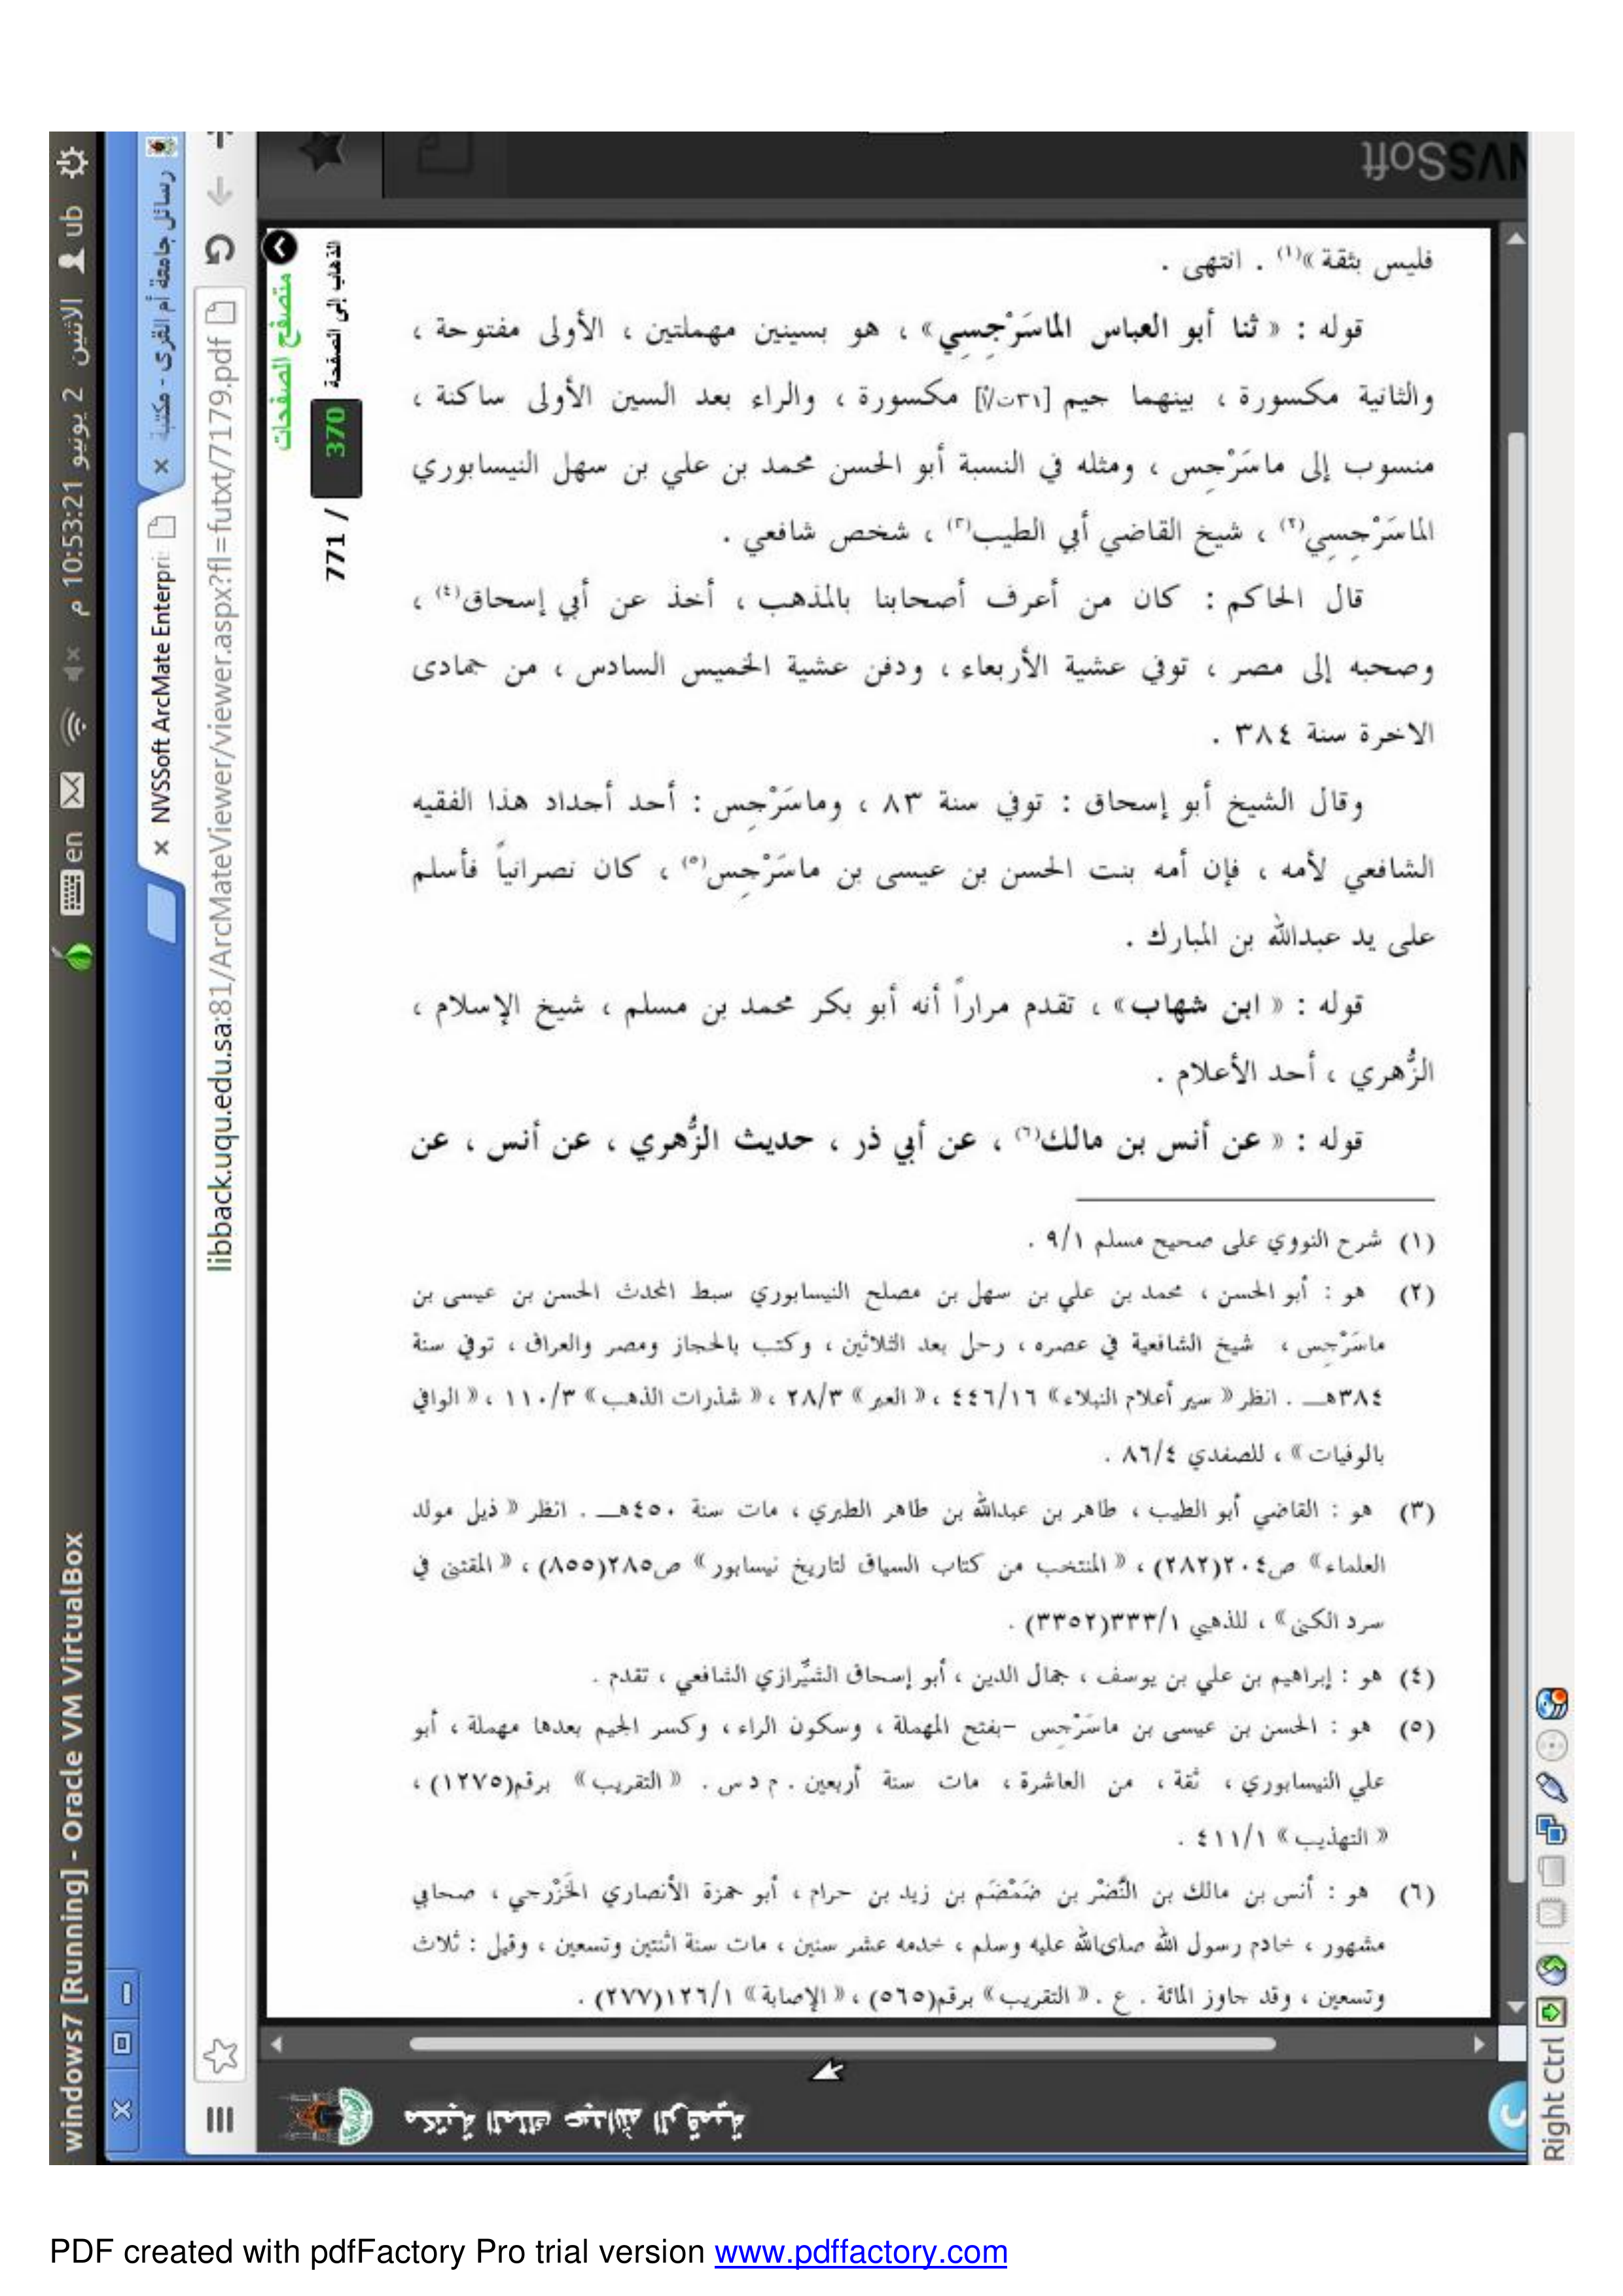 windows7 [Running] - Oracle VM VirtualBox
en
الاثنين 2 يونيو 10:53:21 م
ub
رسائل جامعة أم القرى - مكتبة ×
NVSSoft ArcMate Enterpri ×
libback.uqu.edu.sa:81/ArcMateViewer/viewer.aspx?fl=futxt/7179.pdf
متصفح الصفحات
الذهاب إلى الصفحة 370 / 771
NVSSoft
فليس بثقة »(١) . انتهى .
قوله : « ثنا أبو العباس الماسَرْجِسِي» ، هو بسينين مهملتين ، الأولى مفتوحة ،
والثانية مكسورة ، بينهما جيم [٣١ت/أ] مكسورة ، والراء بعد السين الأولى ساكنة ،
منسوب إلى ماسَرْجِس ، ومثله في النسبة أبو الحسن محمد بن علي بن سهل النيسابوري
الماسَرْجِسِي(٢) ، شيخ القاضي أبي الطيب(٣) ، شخص شافعي .
قال الحاكم : كان من أعرف أصحابنا بالمذهب ، أخذ عن أبي إسحاق(٤) ،
وصحبه إلى مصر ، توفي عشية الأربعاء ، ودفن عشية الخميس السادس ، من جمادى
الاخرة سنة ٣٨٤ .
وقال الشيخ أبو إسحاق : توفي سنة ٨٣ ، وماسَرْجِس : أحد أجداد هذا الفقيه
الشافعي لأمه ، فإن أمه بنت الحسن بن عيسى بن ماسَرْجِس(٥) ، كان نصرانياً فأسلم
على يد عبدالله بن المبارك .
قوله : « ابن شهاب» ، تقدم مراراً أنه أبو بكر محمد بن مسلم ، شيخ الإسلام ،
الزُّهري ، أحد الأعلام .
قوله : « عن أنس بن مالك(٦) ، عن أبي ذر ، حديث الزُّهري ، عن أنس ، عن
(١) شرح النووي على صحيح مسلم ٩/١ .
(٢) هو : أبو الحسن ، محمد بن علي بن سهل بن مصلح النيسابوري سبط المحدث الحسن بن عيسى بن
ماسَرْجِس ، شيخ الشافعية في عصره ، رحل بعد الثلاثين ، وكتب بالحجاز ومصر والعراق ، توفي سنة
٣٨٤هـ . انظر « سير أعلام النبلاء» ٤٤٦/١٦ ، « العبر » ٢٨/٣ ، « شذرات الذهب » ١١٠/٣ ، « الوافي
بالوفيات » ، للصفدي ٨٦/٤ .
(٣) هو : القاضي أبو الطيب ، طاهر بن عبدالله بن طاهر الطبري ، مات سنة ٤٥٠هـ . انظر « ذيل مولد
العلماء» ص٢٠٤(٢٨٢) ، « المنتخب من كتاب السياق لتاريخ نيسابور » ص٢٨٥(٨٥٥) ، « المقتنى في
سرد الكنى» ، للذهبي ٣٣٣/١(٣٣٥٢) .
(٤) هو : إبراهيم بن علي بن يوسف ، جمال الدين ، أبو إسحاق الشِّيرازي الشافعي ، تقدم .
(٥) هو : الحسن بن عيسى بن ماسَرْجِس -بفتح المهملة ، وسكون الراء ، وكسر الجيم بعدها مهملة ، أبو
علي النيسابوري ، ثقة ، من العاشرة ، مات سنة أربعين . م د س . « التقريب» برقم(١٢٧٥) ،
« التهذيب » ٤١١/١ .
(٦) هو : أنس بن مالك بن النَّضْر بن ضَمْضَم بن زيد بن حرام ، أبو حمزة الأنصاري الخَزْرجي ، صحابي
مشهور ، خادم رسول الله صلى الله عليه وسلم ، خدمه عشر سنين ، مات سنة اثنتين وتسعين ، وقيل : ثلاث
وتسعين ، وقد جاوز المائة . ع . « التقريب » برقم(٥٦٥) ، « الإصابة» ١٢٦/١(٢٧٧) .
مكتبة الملك عبدالله الرقمية
Right Ctrl
PDF created with pdfFactory Pro trial version www.pdffactory.com